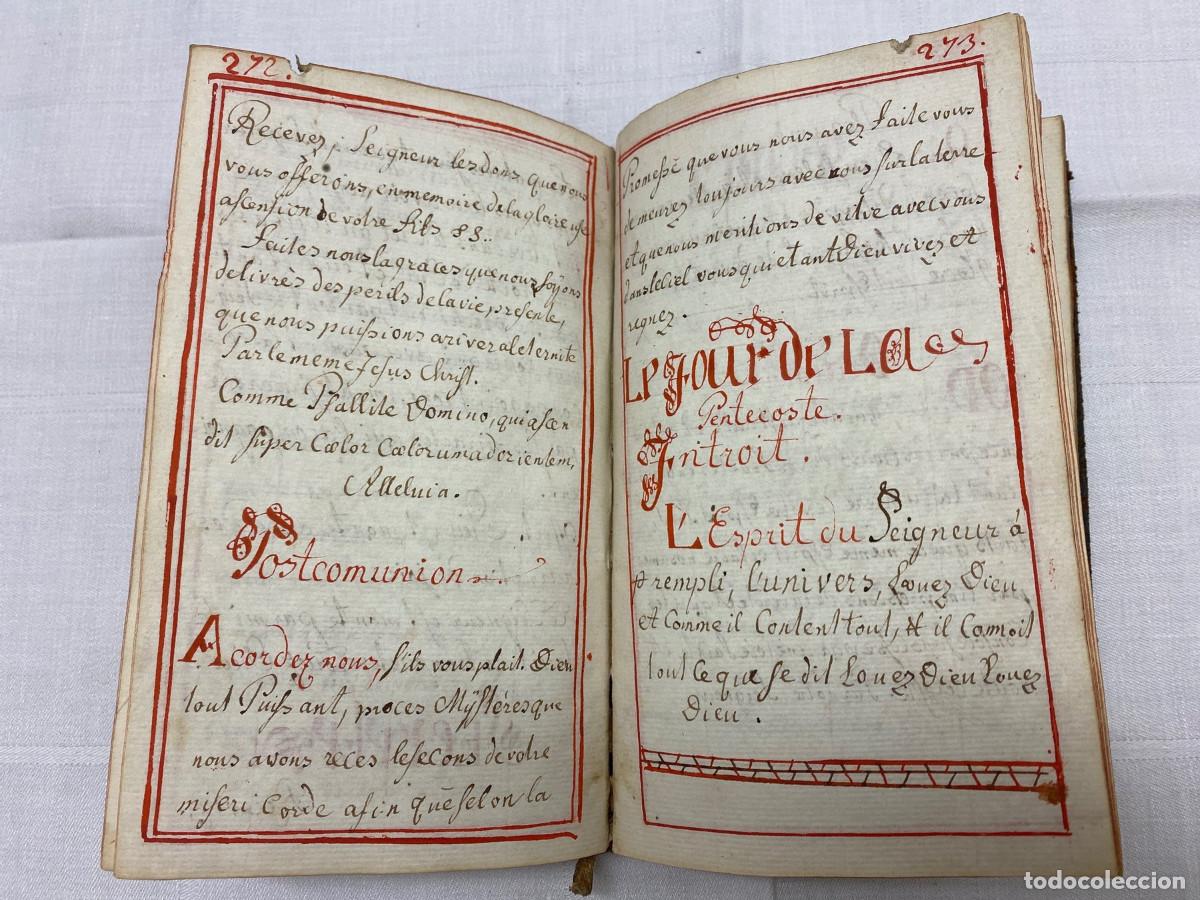 272.
Recevez, Seigneur les dons, que nous
vous offerons, en memoire de la gloire use
ascension de votre fils
faites nous la graces que nous soÿons
delivrés des perils de la vie, presente,
que nous puissions ariver a leternité
Par lememe Jesus Christ.
Comme Psallite Domino, qui ascen
dit super Cœlor Cœlorum ad orientem,
Alleluia.
Postcomunion
Acordez nous, s'ils vous plait. Dieu
tout Puissant, pr oces Mÿstéres que
nous avons reces le secons de votre
miseri Corde afin que selon la
273.
Promesse que vous nous avez faite vous
demeurez toujours avec nous sur la terre
et que nous meritions de vivre avec vous
dans le Ciel vous qui etant Dieu vivez et
regnez.
Le Jour de La
Pentecoste.
Introit.
L'Esprit du Seigneur á
rempli, l'univers, Louez Dieu
et Comme il Contient tout, il Connoit
tout ce que se dit Louez Dieu Louez
Dieu.
todocoleccion